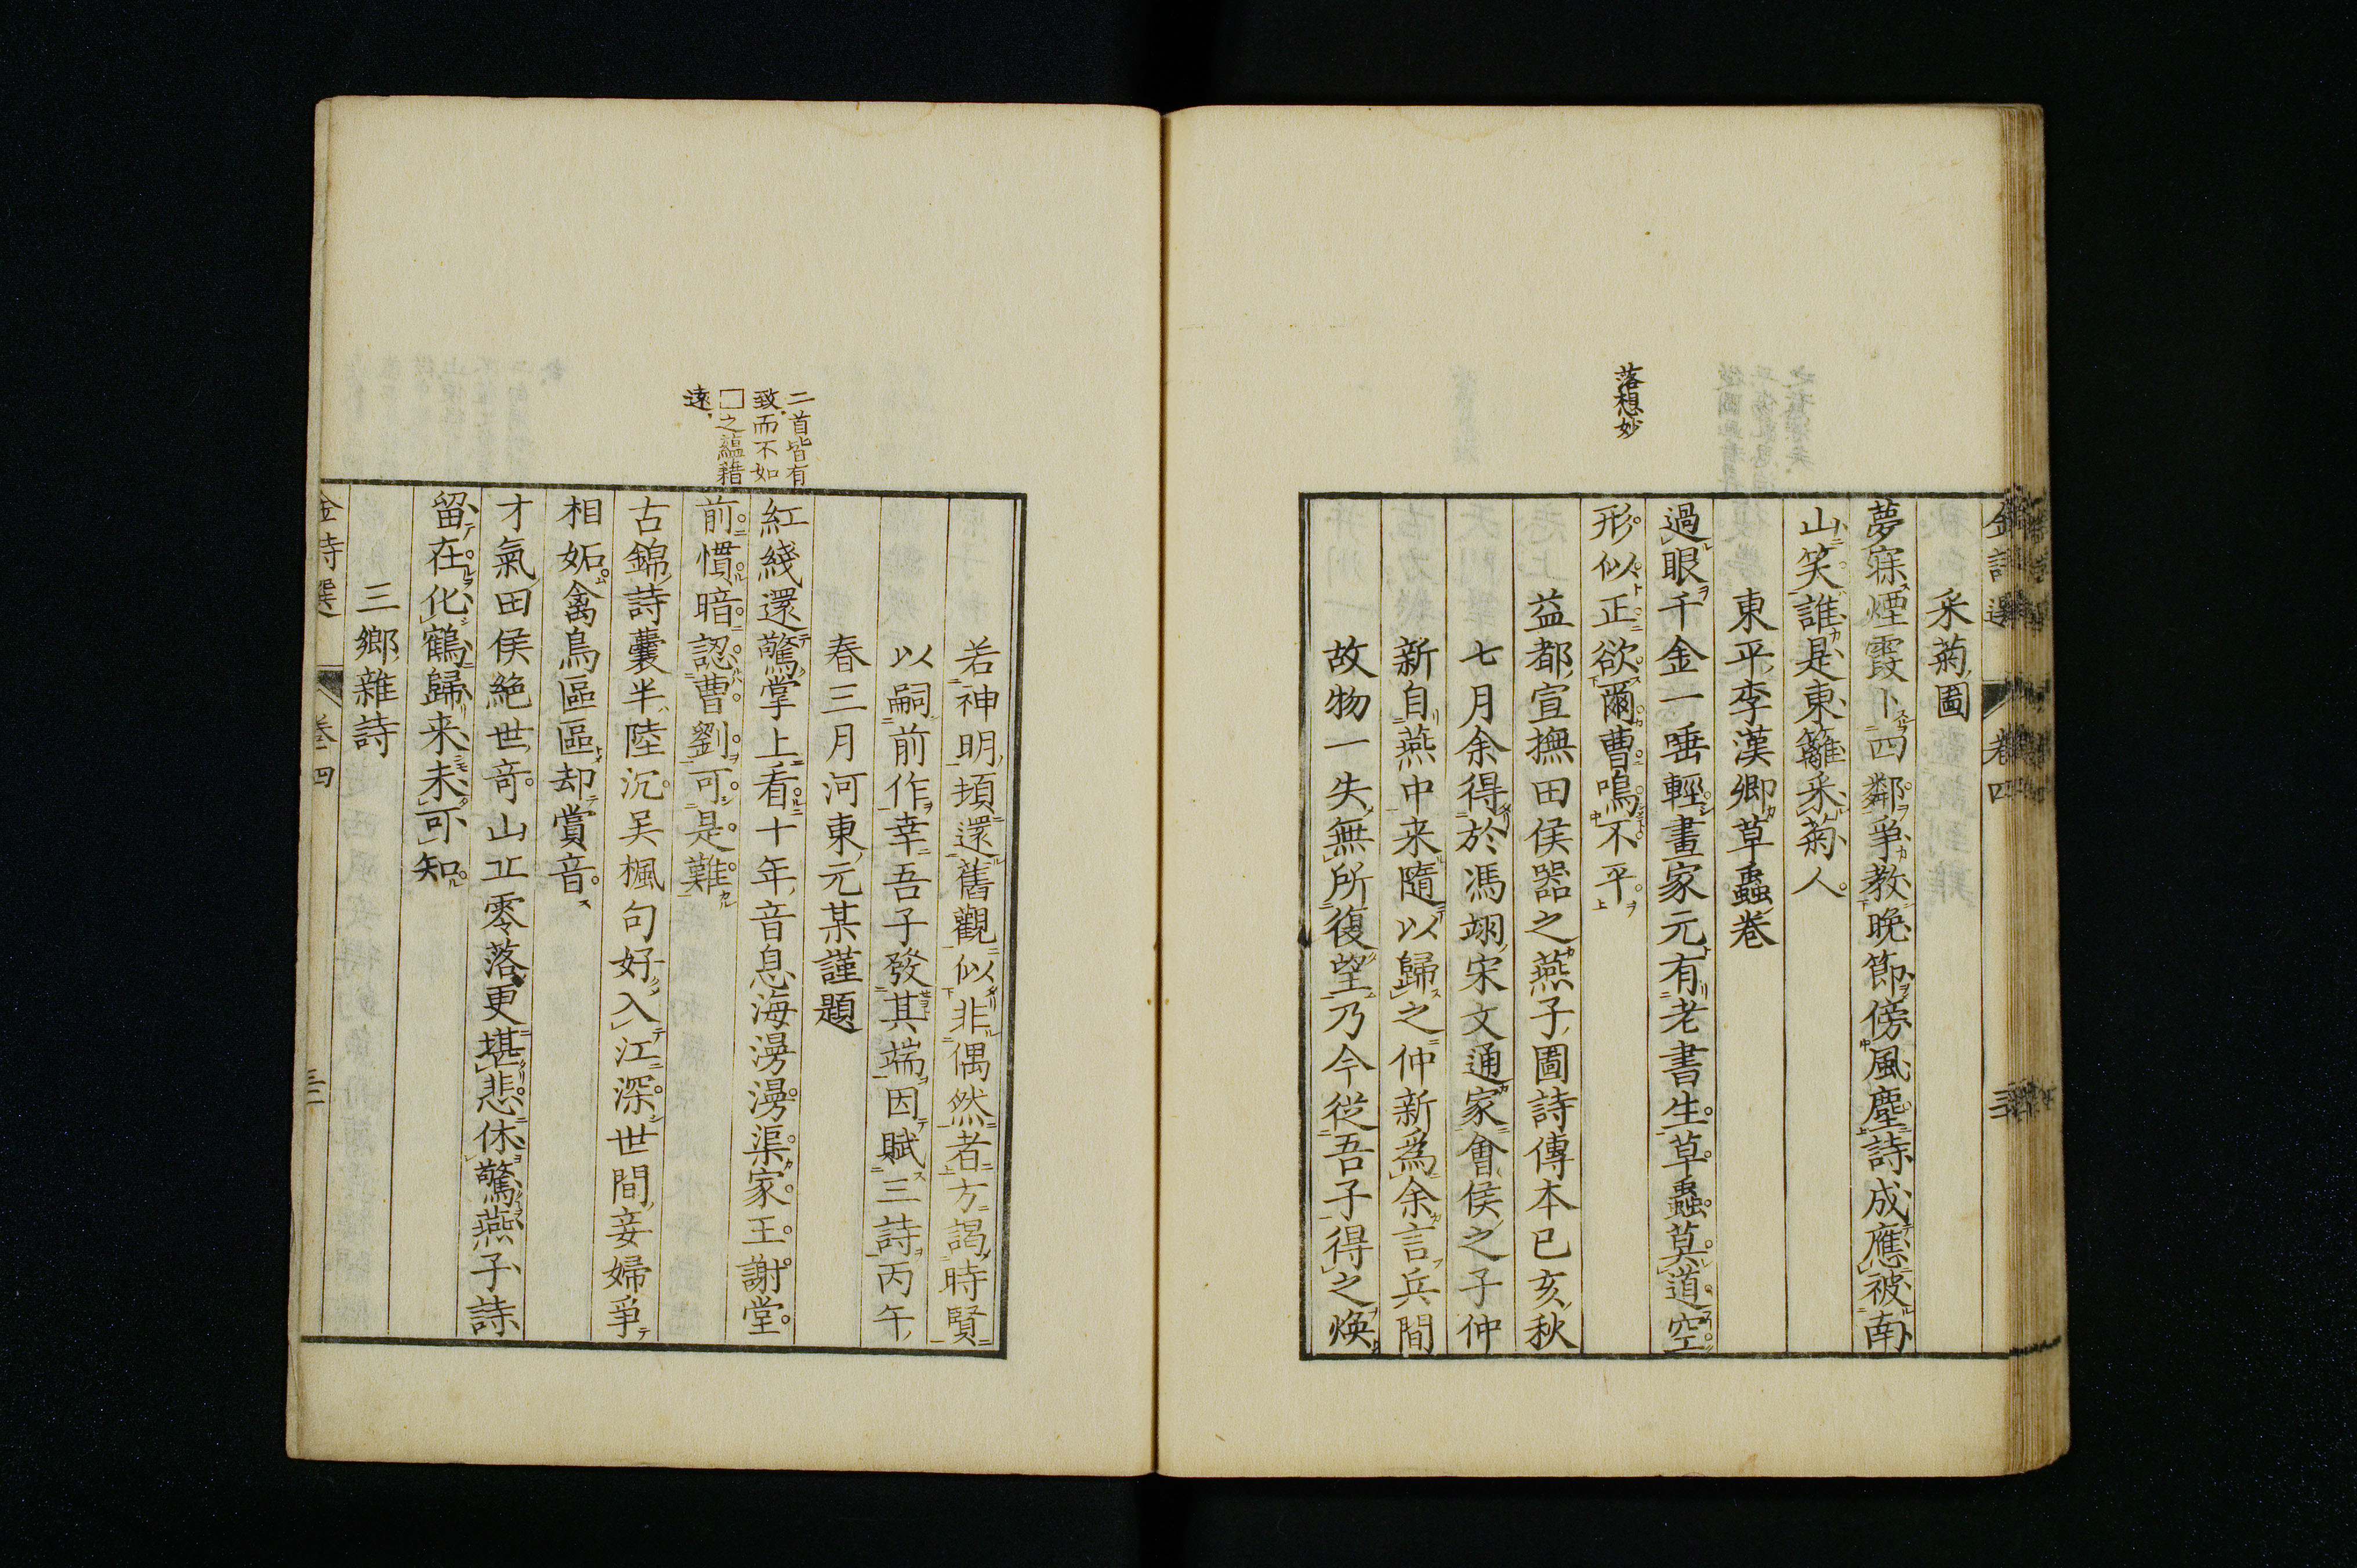 金詩選 卷四 三
采菊圖
夢寐煙霞卜四鄰爭教晚節傍風塵詩成應被南
山笑誰是東籬采菊人
東平李漢卿草蟲卷
落想妙
過眼千金一唾輕畫家元有老書生草蟲莫道空
形似正欲爾曹鳴不平
益都宣撫田侯器之燕子圖詩傳本已亥秋
七月余得於馮翊宋文通家會侯之子仲
新自燕中来隨以歸之仲新爲余言兵間
故物一失無所復望乃今從吾子得之煥
若神明頓還舊觀似非偶然者方謁時賢
以嗣前作幸吾子發其端因賦三詩丙午
春三月河東元某謹題
二首皆有
致而不如
□之蘊藉
遠
紅綫還驚掌上看十年音息海漫漫渠家王謝堂
前慣暗認曹劉可是難
古錦詩囊半陸沉吴楓句好入江深世間妾婦爭
相妬禽鳥區區却賞音
才氣田侯絶世奇山丘零落更堪悲休驚燕子詩
留在化鶴歸来未可知
三鄉雜詩
金詩選 卷四 三